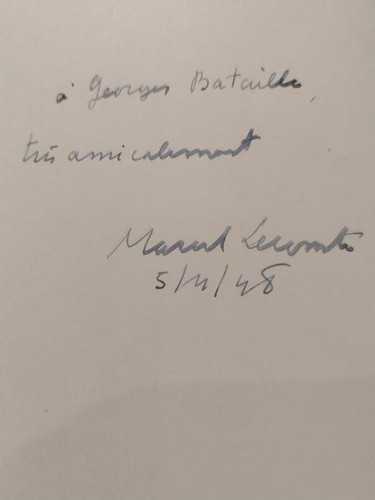 à Georges Bataille,
très amicalement
Marcel Lecomte
5/4/48